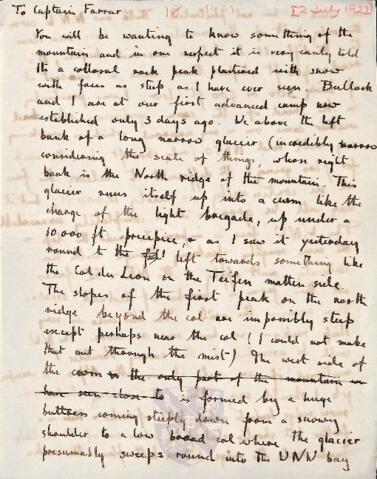 To Captain Farrar [2 July 1921]
You will be wanting to know something of the
mountain and in one respect it is very easily told
It's a collosal rock peak plastered with snow
with faces as steep as I have ever seen. Bullock
and I are at our first advanced camp now
established only 3 days ago. We above the left
bank of a long narrow glacier (incredibly narrow
considering the scale of things, whose right
bank is the North ridge of the mountain. This
glacier runs itself up into a cwm like the
charge of the light brigade, up under a
10000 ft precipice, & as I saw it yesterday
round to the left towards something like
the Col du Lion on the Tiefen matten side
The slopes of the first peak on the north
ridge beyond the col are impossibly steep
except perhaps near the col (I could not make
that out through the mist) The west side of
the cwm is the only part of the mountain we
have seen close to is formed by a huge
buttress coming steeply down from a snowy
shoulder to a low broad col where the glacier
presumably sweeps round into the WNW bay